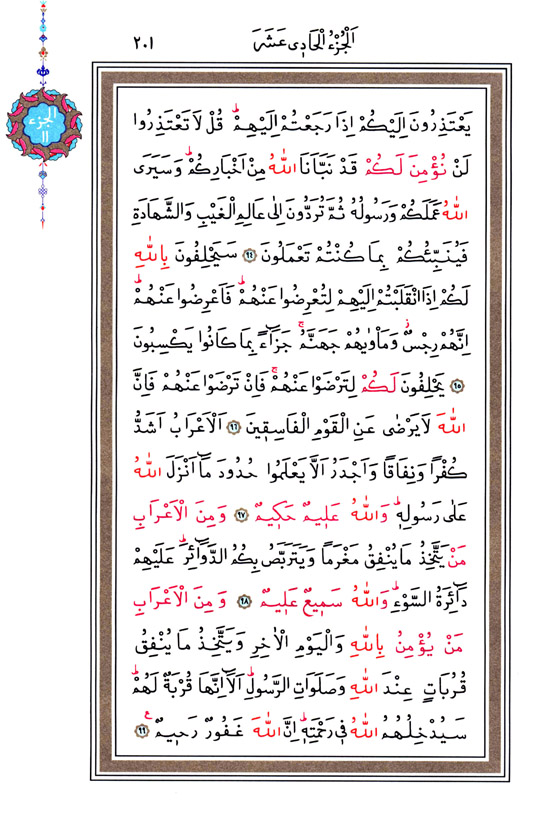 اَلْجُزْءُ الْحَادِي عَشَرَ
٢٠١
الجزء
١١
يَعْتَذِرُونَ اِلَيْكُمْ اِذَا رَجَعْتُمْ اِلَيْهِمْۜ قُلْ لَا تَعْتَذِرُوا
لَنْ نُؤْمِنَ لَكُمْ قَدْ نَبَّاَنَا اللّٰهُ مِنْ اَخْبَارِكُمْۜ وَسَيَرَى
اللّٰهُ عَمَلَكُمْ وَرَسُولُهُ ثُمَّ تُرَدُّونَ اِلٰى عَالِمِ الْغَيْبِ وَالشَّهَادَةِ
فَيُنَبِّئُكُمْ بِمَا كُنْتُمْ تَعْمَلُونَ ﴿٩٤﴾ سَيَحْلِفُونَ بِاللّٰهِ
لَكُمْ اِذَا انْقَلَبْتُمْ اِلَيْهِمْ لِتُعْرِضُوا عَنْهُمْۜ فَاَعْرِضُوا عَنْهُمْۜ
اِنَّهُمْ رِجْسٌۘ وَمَأْوٰيهُمْ جَهَنَّمُۚ جَزَٓاءً بِمَا كَانُوا يَكْسِبُونَ
﴿٩٥﴾ يَحْلِفُونَ لَكُمْ لِتَرْضَوْا عَنْهُمْۚ فَاِنْ تَرْضَوْا عَنْهُمْ فَاِنَّ
اللّٰهَ لَا يَرْضٰى عَنِ الْقَوْمِ الْفَاسِقِينَ ﴿٩٦﴾ اَلْاَعْرَابُ اَشَدُّ
كُفْرًا وَنِفَاقًا وَاَجْدَرُ اَلَّا يَعْلَمُوا حُدُودَ مَٓا اَنْزَلَ اللّٰهُ
عَلٰى رَسُولِهِۜ وَاللّٰهُ عَلِيمٌ حَكِيمٌ ﴿٩٧﴾ وَمِنَ الْاَعْرَابِ
مَنْ يَتَّخِذُ مَا يُنْفِقُ مَغْرَمًا وَيَتَرَبَّصُ بِكُمُ الدَّوَٓائِرَۜ عَلَيْهِمْ
دَٓائِرَةُ السَّوْءِۜ وَاللّٰهُ سَمِيعٌ عَلِيمٌ ﴿٩٨﴾ وَمِنَ الْاَعْرَابِ
مَنْ يُؤْمِنُ بِاللّٰهِ وَالْيَوْمِ الْاٰخِرِ وَيَتَّخِذُ مَا يُنْفِقُ
قُرُبَاتٍ عِنْدَ اللّٰهِ وَصَلَوَاتِ الرَّسُولِۜ اَلَٓا اِنَّهَا قُرْبَةٌ لَهُمْۜ
سَيُدْخِلُهُمُ اللّٰهُ فِي رَحْمَتِهِۜ اِنَّ اللّٰهَ غَفُورٌ رَحِيمٌ۟ ﴿٩٩﴾